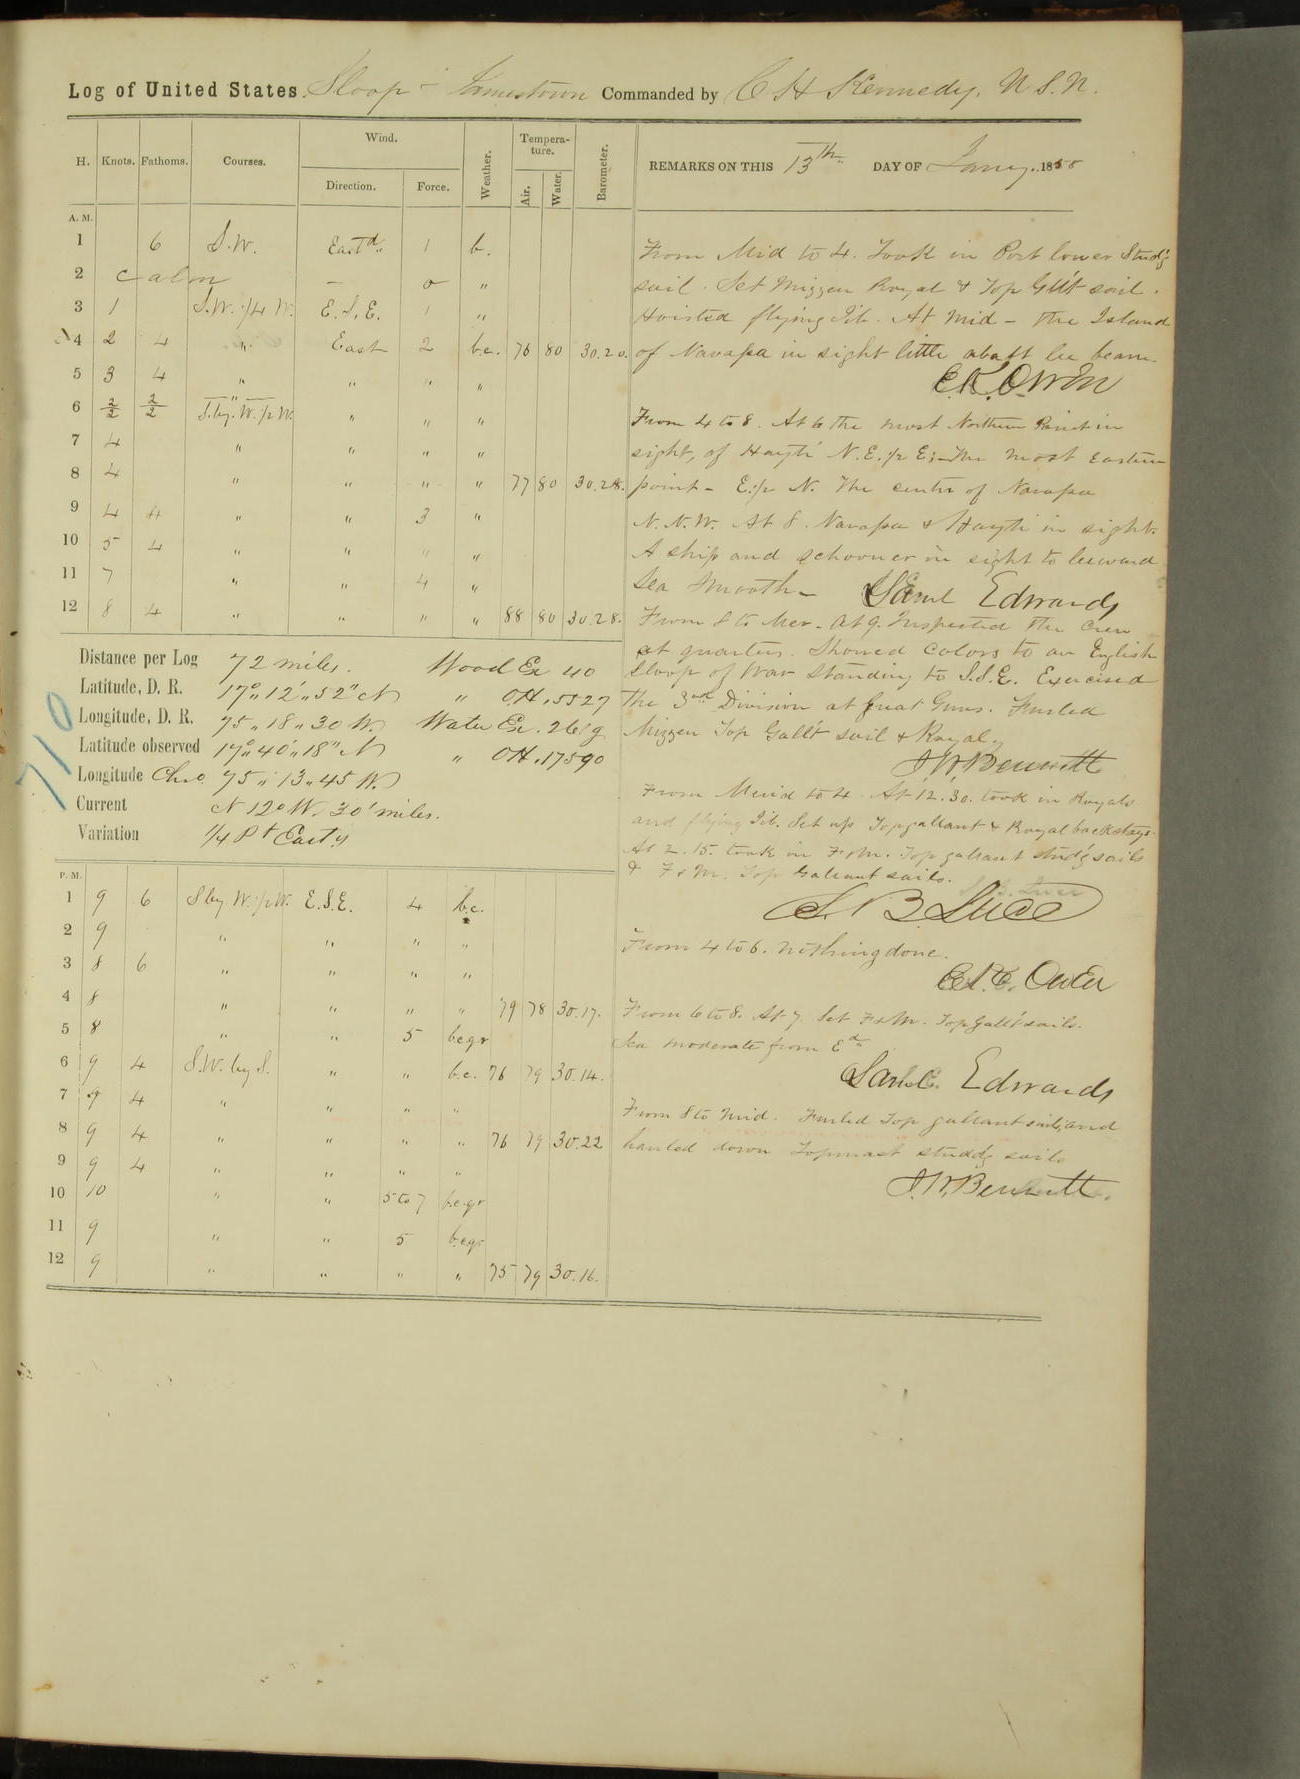 Log of United States Sloop - Jamestown Commanded by C H Kennedy, U S.N.
H. Knots. Fathoms. Courses. Wind. Direction. Force. Weather. Tempera-ture. Air. Water. Barometer. REMARKS ON THIS 13th DAY OF Jany. 1858
A. M.
1 6 S.W. Eastd. 1 b.
2 calm — 0 "
3 1 S.W. 1/4 W. E.S.E. 1 "
4 2 4 " East 2 b.c. 76 80 30.20.
5 3 4 " " " "
6 2/2 2/2 S. by. W. 1/2 W. " " "
7 4 " " " "
8 4 " " " " 77 80 30.28.
9 4 4 " " 3 "
10 5 4 " " " "
11 7 " " 4 "
12 8 4 " " " " 88 80 30.28.
From Mid to 4. Took in Port lower Studg
sail. Set Mizzen Royal & Top Gllt sail.
Hoisted flying Jib. At Mid - the Island
of Navassa in sight little abaft lee beam.
E.K. Owen
From 4 to 8. At 6 the most Northern Point in
sight, of Hayti N.E. 1/2 E; - the most Eastern
point - E. 1/2 N. The center of Navassa
N.N.W. At 8. Navassa & Hayti in sight.
A ship and schooner in sight to leeward
Sea Smooth - Saml Edwards
From 8 to Mer. At 9. Inspected the crew
at quarters. Showed Colors to an English
Sloop of War standing to S.S.E. Exercised
the 3rd Division at Great Guns. Furled
Mizzen Top Gallt sail & Royal.
J.W. Bennett
Distance per Log 72 miles. Wood Ex 40
Latitude, D. R. 17° 12' 52" N " OH. 5527
Longitude, D. R. 75 " 18 " 30 W. Water Ex. 261 g
Latitude observed 17° 40' 18" N " OH. 17590
Longitude Chro. 75 " 13 " 45 W.
Current N 12° W. 30' miles.
Variation 1/4 Pt East'y
710
From Merid to 4. At 12.30. took in Royals
and flying Jib. Set up Topgallant & Royal backstays.
At 2.15. took in F & M. Top gallant studg sails
& F & M. Top Gallant sails.
S. B. Luce
P. M.
1 9 6 S by W. 1/2 W. E.S.E. 4 b.c.
2 9 " " " "
3 8 6 " " " "
4 8 " " " " 79 78 30.17.
5 8 " " 5 b.c.q.r
6 9 4 S.W. by S. " " b.c. 76 79 30.14.
7 9 4 " " " "
8 9 4 " " " " 76 79 30.22
9 9 4 " " " "
10 10 " " 5 to 7 b.c.q.r
11 9 " " 5 b.c.q.r
12 9 " " " " 75 79 30.16.
From 4 to 6. nothing done.
E.K. Owen
From 6 to 8. At 7 Set F & M. Top Gallt sails.
Sea moderate from Ed.
Saml. Edwards
From 8 to Mid. Furled Top gallant sails, and
hauled down Topmast studdg sails
J.W. Bennett.